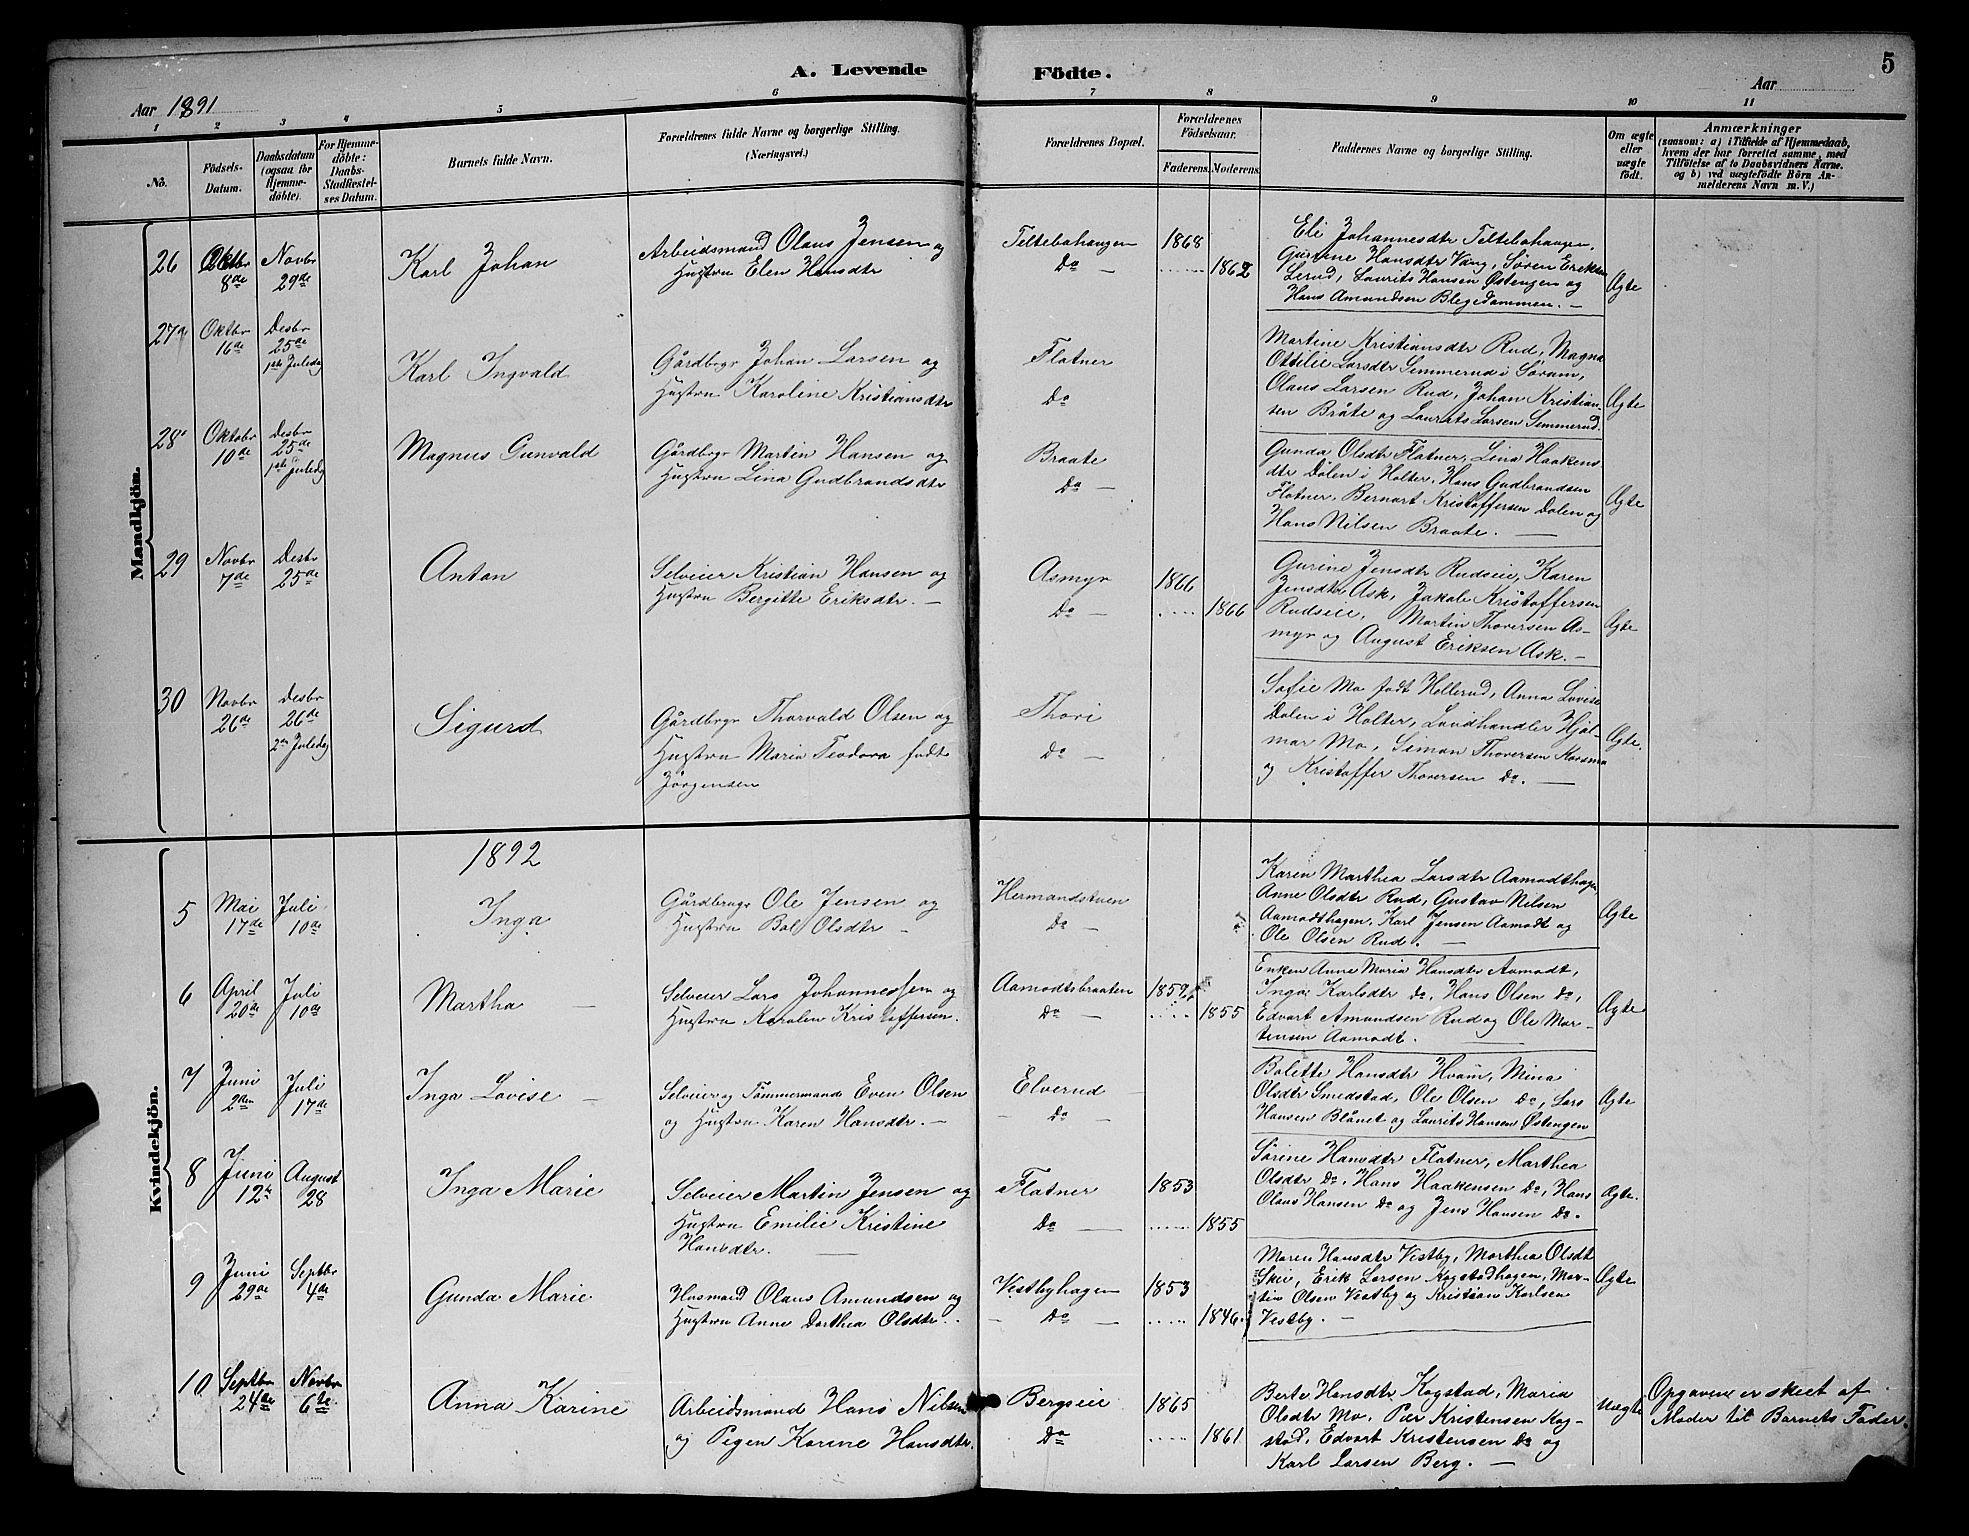 A. Levende Födte.
5
Aar 1891
Aar
1 2 3 4 5 6 7 8 9 10 11
No.
Födsels-Datum.
Daabsdatum (ogsaa for Hjemme-döbte).
For Hjemme-döbte: Daabs-Stadfæstel-ses Datum.
Barnets fulde Navn.
Forældrenes fulde Navne og borgerlige Stilling. (Næringsvei.)
Forældrenes Bopæl.
Forældrenes Födselsaar.
Faderens. Moderens.
Faddernes Navne og borgerlige Stilling.
Om ægte eller uægte födt.
Anmærkninger
(saasom: a) i Tilfælde af Hjemmedaab,
hvem der har forrettet samme, med
Tilföielse af to Daabsvidners Navne.
og b) ved uægtefödte Börn An-
melderens Navn m. V.)
Mandkjön.
26 Oktbr 8de Novbr 29de
Karl Johan
Arbeidsmand Olaus Jensen og
Hustru Elen Hansdtr
Teltebohaugen
Do —
1868
1862
Eli Johannesdtr Teltebohaugen,
Gurine Hansdtr Vang, Søren Eriksen
Lerud, Laurits Hansen Østengen og
Hans Amundsen Blegedammen. —
Ægte
27 Oktbr 16de Desbr 25de 1ste Juledag
Karl Ingvald
Gårdbrgr Johan Larsen og
Hustru Karoline Kristiansdtr
Flatner
Do
Martine Kristiansdtr Rud, Magna
Ottilie Larsdtr Semmerud i Sørum,
Olaus Larsen Rud, Johan Kristian-
sen Bråte og Laurats Larsen Semmerud.
Ægte
28 Oktobr 10de Desbr 25de 1ste Juledag
Magnus Gunvald
Gårdbrgr Martin Hansen og
Hustru Lina Gudbrandsdtr
Braate
Do —
Gunda Olsdtr Flatner, Lina Haakens
dtr Dalen i Holter, Hans Gudbrandsen
Flatner, Bernart Kristoffersen Dalen og
Hans Nilsen Braate. —
Ægte
29 Novbr 7de Desbr 25de
Anton
Selveier Kristian Hansen og
Hustru Bergitte Eriksdtr. —
Asmyr
Do —
1866
1866
Gurine Jensdtr Rudseie, Karen
Jensdtr Ask, Jakob Kristoffersen
Rudseie, Martin Thoversen As-
myr og August Eriksen Ask. —
Ægte
30 Novbr 26de Desbr 26de 2den Juledag
Sigurd
Gårdbrgr Thorvald Olsen og
Hustru Maria Teodora født
Jörgensen
Thori
Do —
Sofie Mo født Hellerud, Anna Lovise
Dalen i Holter, Landhandler Hjal-
mar Mo, Simon Thoversen Korsmo
og Kristoffer Thoversen Do. —
Ægte.
Kvindekjön.
1892
5 Mai 17de Juli 10de
Inga
Gårdbrugr Ole Jensen og
Hustru Bol Olsdtr —
Hermandstuen
Do —
Karen Marthea Larsdtr Aamodthagen
Anne Olsdtr Rud, Gustav Nilsen
Aamodthagen, Karl Jensen Aamodt og
Ole Olsen Rud. —
Ægte
6 April 20de Juli 10de
Martha —
Selveier Lars Johannessen og
Hustru Karolen Kristoffersen.
Aamodtsbraaten
Do —
1859
1855
Enken Anne Maria Hansdtr Aamodt,
Inga Karlsdtr do, Hans Olsen do,
Edvart Amundsen Rud og Ole Mar-
tensen Aamodt.
Ægte
7 Juni 2den Juli 17de
Inga Lovise —
Selveier og Tømmermand Even Olsen
og Hustru Karen Hansdtr. —
Elverud —
— Do —
Bolette Hansdtr Hvam, Mina
Olsdtr Smedstad, Ole Olsen Do, Lars
Hansen Blånet og Laurits Hansen Østengen
Ægte
8 Juni 12te August 28
Inga Marie
Selveier Martin Jensen og
Hustru Emilie Kristine
Hansdtr. —
Flatner
Do —
1853
1855
Sørine Hansdtr Flatner, Marthea
Olsdtr Do, Hans Haakensen Do, Hans
Olaus Hansen Do og Jens Hansen Do.
Ægte.
9 Juni 29de Septbr 4de
Gunda Marie
Husmand Olaus Amundsen og
Hustru Anne Dorthea Olsdtr.
Vestbyhagen
— Do —
1853
1846
Maren Hansdtr Vestby, Marthea Olsdt
Skei, Erik Larsen Kogstadhagen, Mar-
tin Olsen Vestby og Kristian Karlsen
Vestby. —
Ægte
10 Septbr 24de Novbr 6te
Anna Karine
Arbeidsmand Hans Nilsen
og Pigen Karine Hansdtr.
Bergseie
Do
1865
1861
Berte Hansdtr Kogstad, Maria
Olsdtr Mo, Per Kristensen Kog-
stad, Edvart Kristensen Do og
Karl Larsen Berg. —
Uægte
Opgavene er skeet af
Moder til Barnets Fader.